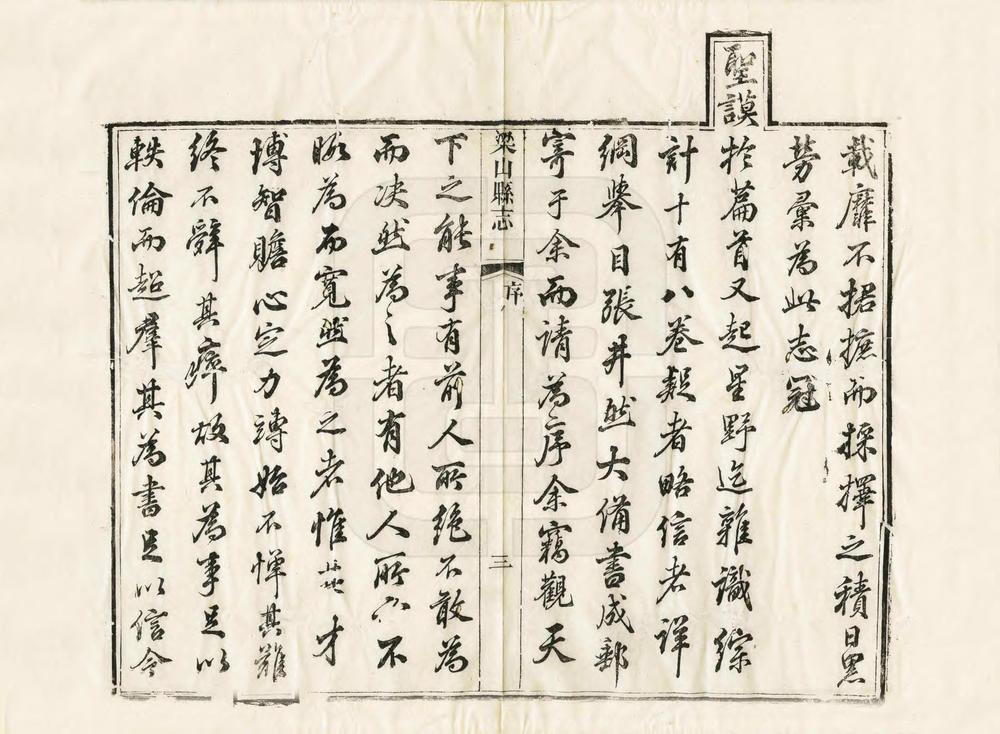 載靡不捃摭而採擇之積日累
勞彙為此志冠
聖謨於篇首又起星野迄雜識綜
計十有八卷疑者略信者詳
綱舉目張井然大備書成郵
寄于余而請為序余竊觀天
梁山縣志 序 三
下之能事有前人所絶不敢為
而决然為之者有他人所亦不
暇為而寬然為之者惟其才
博智贍心定力專始不憚其難
終不辭其瘁故其為事足以
軼倫而超羣其為書足以信今